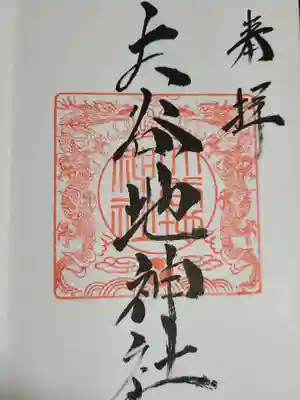 奉拝
大谷地神社